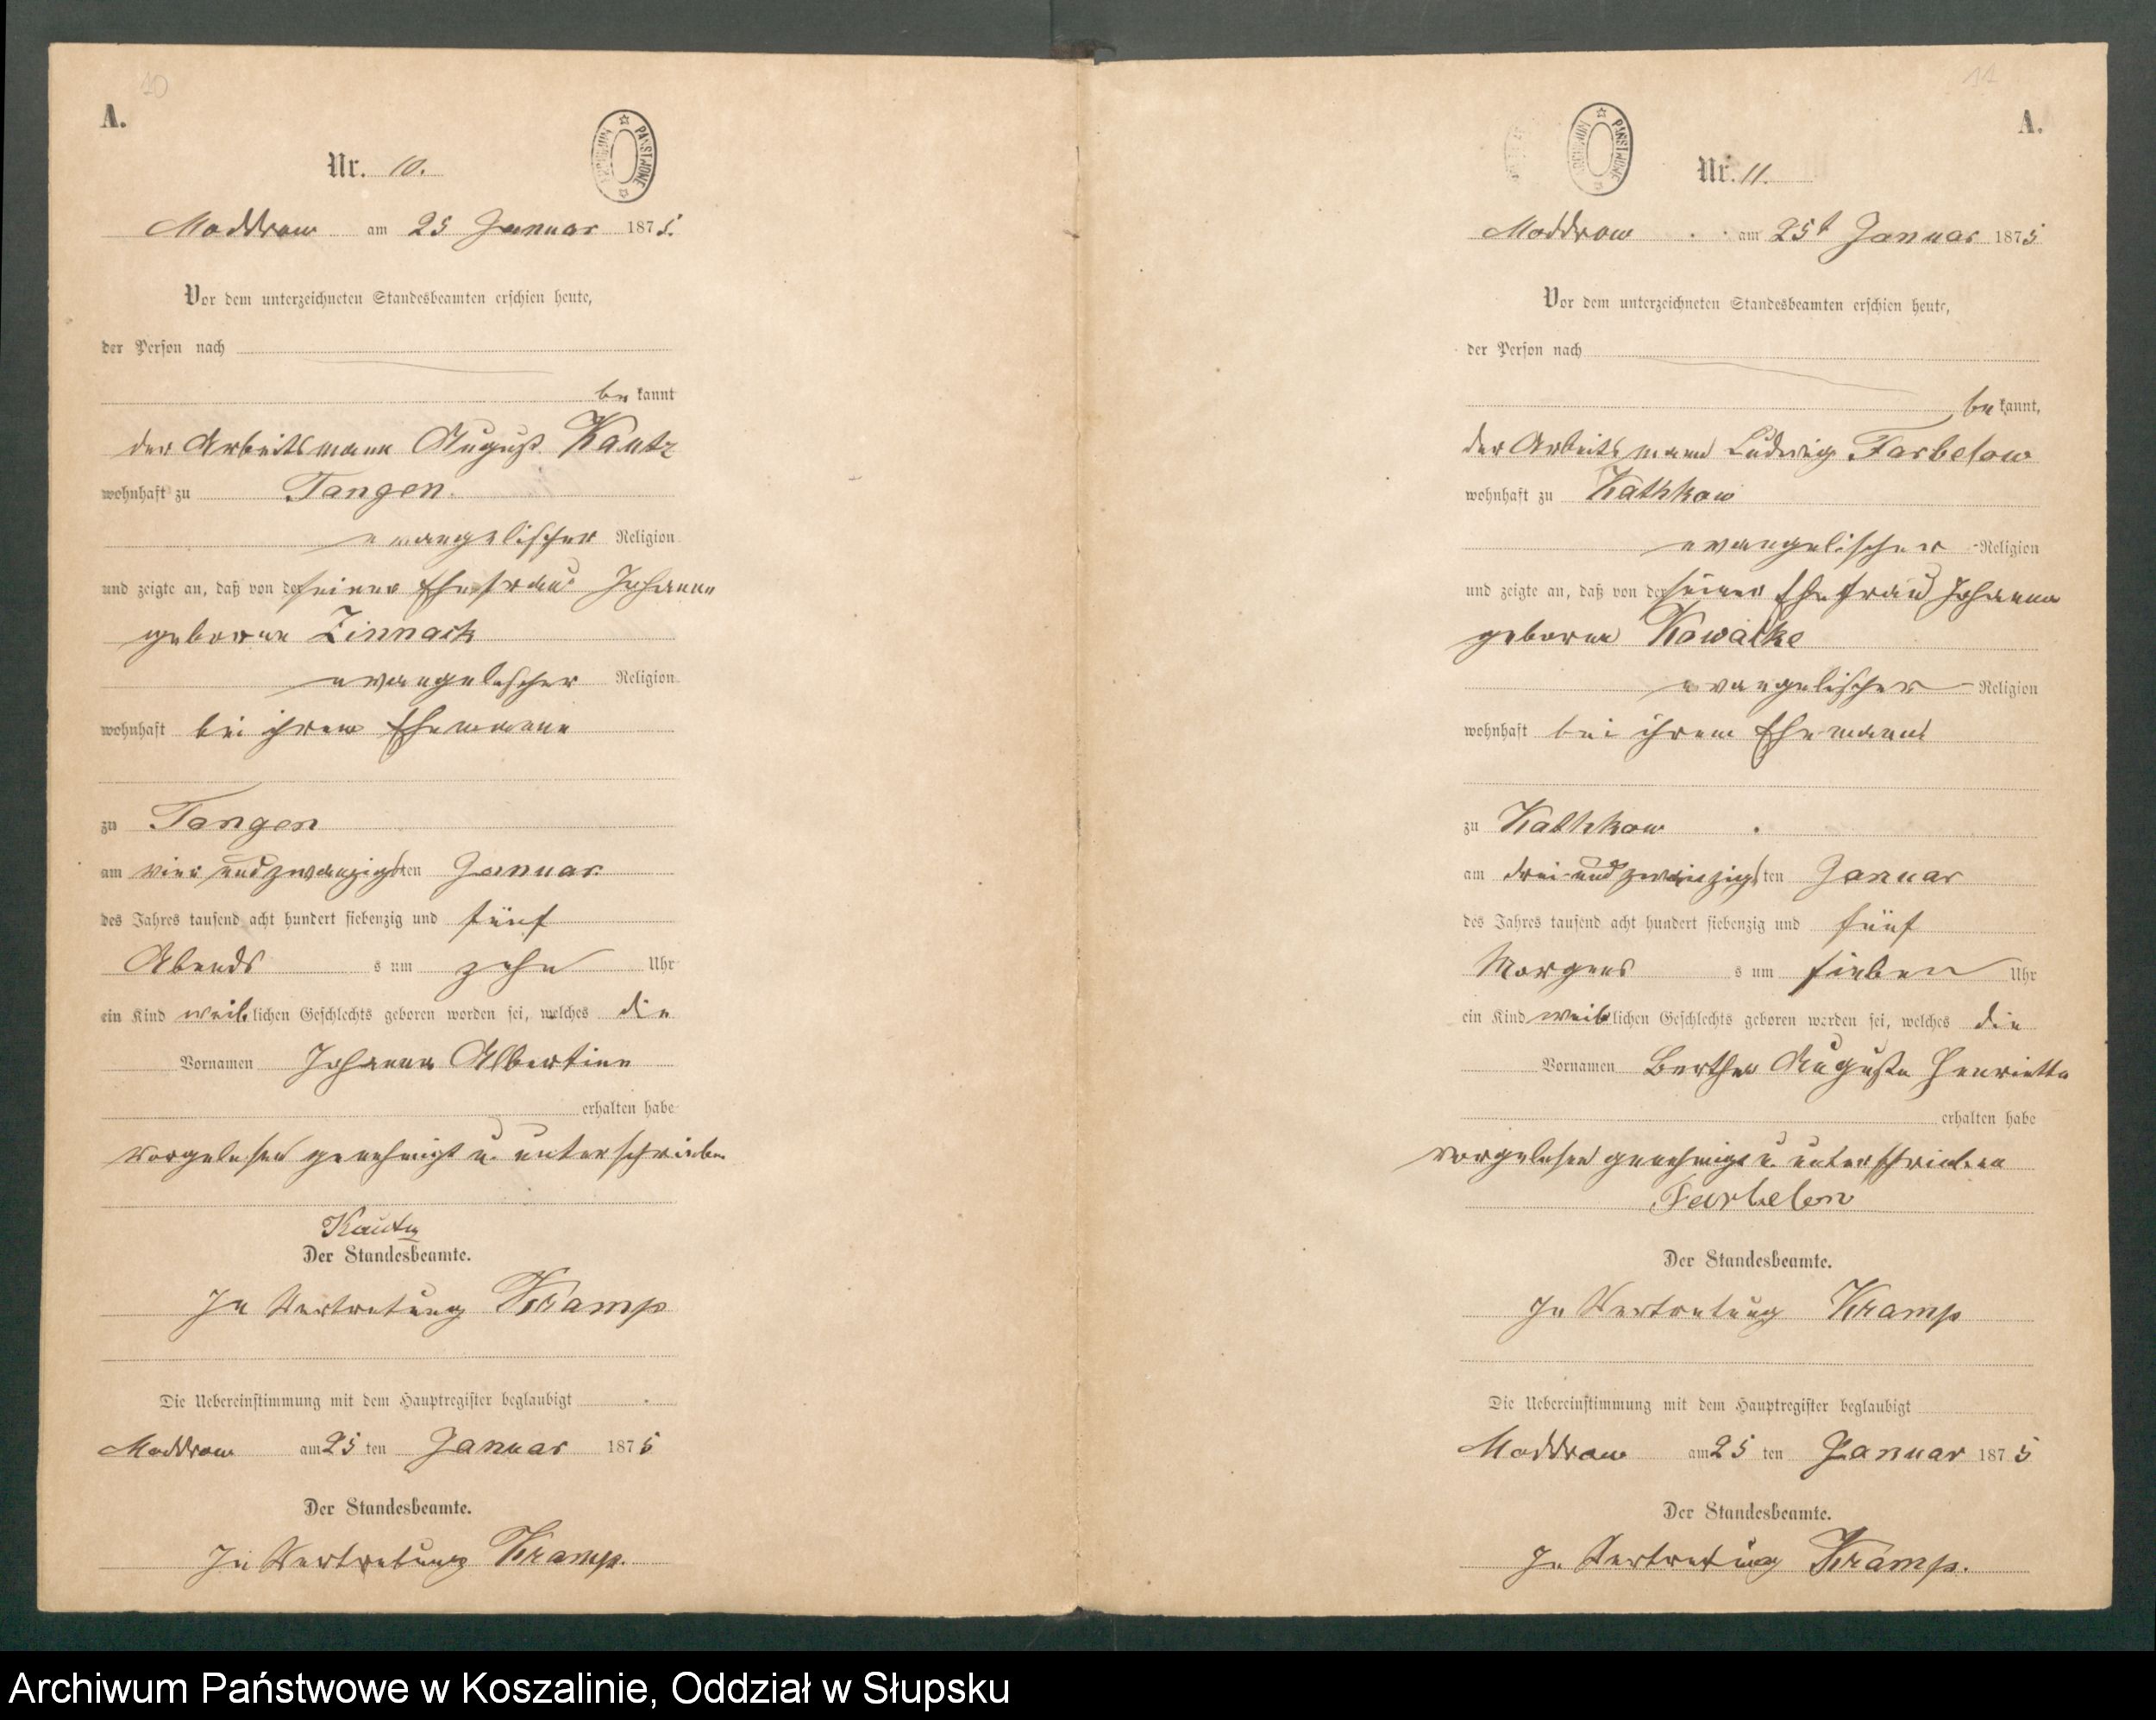 10
A.
ARCHIWUM PAŃSTWOWE
Nr. 10.
Moddrow am 25 Januar 1875.
Vor dem unterzeichneten Standesbeamten erschien heute,
der Person nach
be kannt
der Arbeitsmann August Kautz
wohnhaft zu Tangen.
evangelischer Religion
und zeigte an, daß von der seiner Ehefrau Johanne
geborne Zinnack
evangelischer Religion
wohnhaft bei ihrem Ehemanne
zu Tangen
am vier und zwanzigsten Januar
des Jahres tausend acht hundert siebenzig und fünf
Abends s um zehn Uhr
ein Kind weiblichen Geschlechts geboren worden sei, welches die
Vornamen Johanna Albertine
erhalten habe
vorgelesen genehmigt u. unterschrieben
Kautz
Der Standesbeamte.
In Vertretung Kramp
Die Uebereinstimmung mit dem Hauptregister beglaubigt
Moddrow am 25 ten Januar 1875
Der Standesbeamte.
In Vertretung Kramp.
11
A.
ARCHIWUM PAŃSTWOWE
Nr. 11.
Moddrow am 25t Januar 1875
Vor dem unterzeichneten Standesbeamten erschien heute,
der Person nach
be kannt,
der Arbeitsmann Ludwig Farbelow
wohnhaft zu Kathkow
evangelischer Religion
und zeigte an, daß von der seiner Ehefrau Johanna
geborne Kowalke
evangelischer Religion
wohnhaft bei ihrem Ehemann
zu Kathkow
am drei und zwanzigsten Januar
des Jahres tausend acht hundert siebenzig und fünf
Morgens s um sieben Uhr
ein Kind weiblichen Geschlechts geboren worden sei, welches die
Vornamen Bertha Auguste Henriette
erhalten habe
vorgelesen genehmigt u. unterschrieben
Farbelow
Der Standesbeamte.
In Vertretung Kramp
Die Uebereinstimmung mit dem Hauptregister beglaubigt
Moddrow am 25 ten Januar 1875
Der Standesbeamte.
In Vertretung Kramp.
Archiwum Państwowe w Koszalinie, Oddział w Słupsku